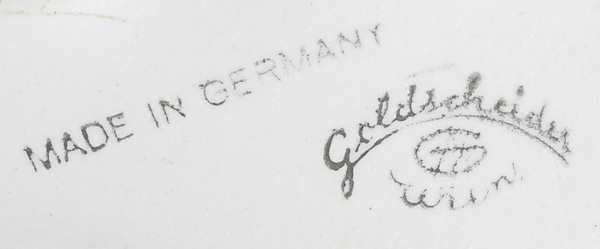 MADE IN GERMANY
Goldscheider
Wien